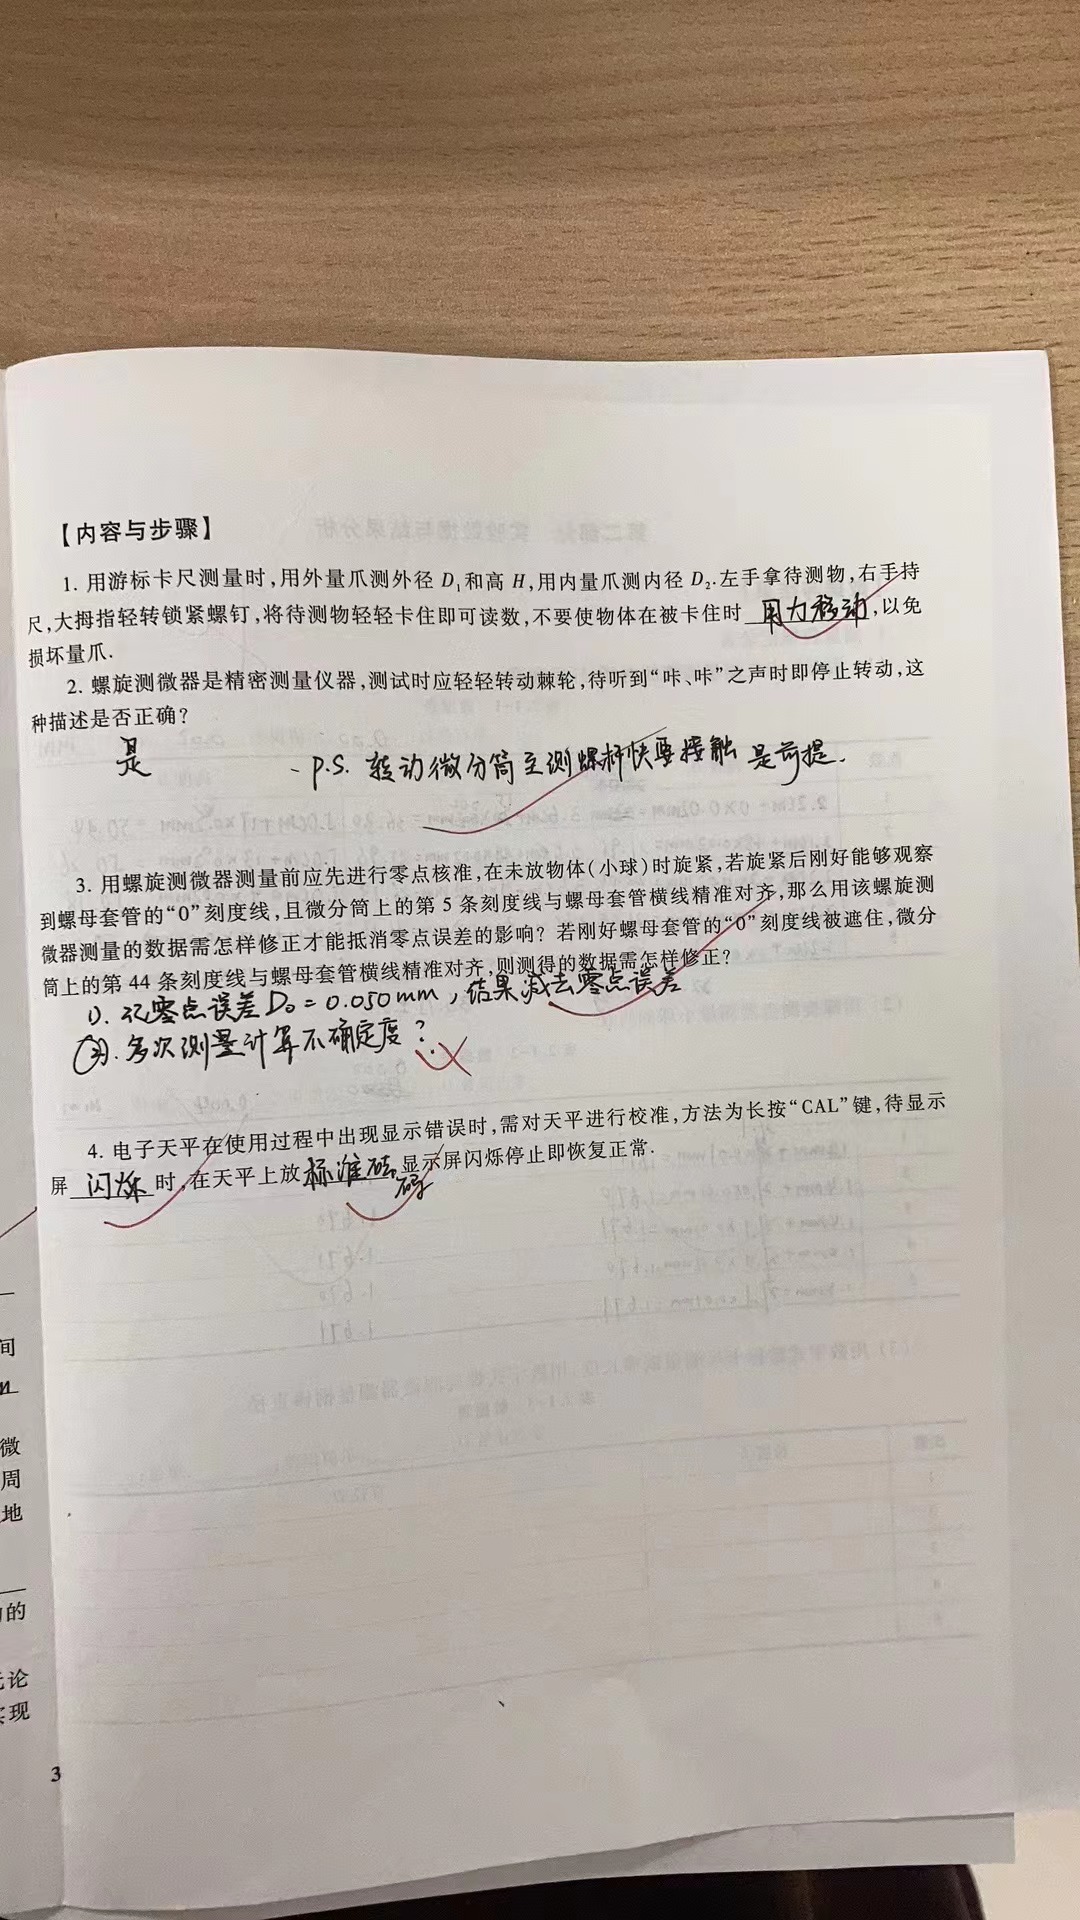 【内容与步骤】
1. 用游标卡尺测量时,用外量爪测外径 D₁和高 H,用内量爪测内径 D₂.左手拿待测物,右手持
尺,大拇指轻转锁紧螺钉,将待测物轻轻卡住即可读数,不要使物体在被卡住时 用力移动,以免
损坏量爪.
2. 螺旋测微器是精密测量仪器,测试时应轻轻转动棘轮,待听到“咔、咔”之声时即停止转动,这
种描述是否正确?
是 - P.S. 转动微分筒至测螺杆快要接触 是前提.
3. 用螺旋测微器测量前应先进行零点核准,在未放物体(小球)时旋紧,若旋紧后刚好能够观察
到螺母套管的“0”刻度线,且微分筒上的第 5 条刻度线与螺母套管横线精准对齐,那么用该螺旋测
微器测量的数据需怎样修正才能抵消零点误差的影响? 若刚好螺母套管的“0”刻度线被遮住,微分
筒上的第 44 条刻度线与螺母套管横线精准对齐,则测得的数据需怎样修正?
1). 记零点误差 D₀ = 0.050mm, 结果减去零点误差
2). 多次测量计算不确定度?
4. 电子天平在使用过程中出现显示错误时,需对天平进行校准,方法为长按“CAL”键,待显示
屏 闪烁 时,在天平上放 标准砝码 显示屏闪烁停止即恢复正常.
间
微
周
地
的
论
实现
3